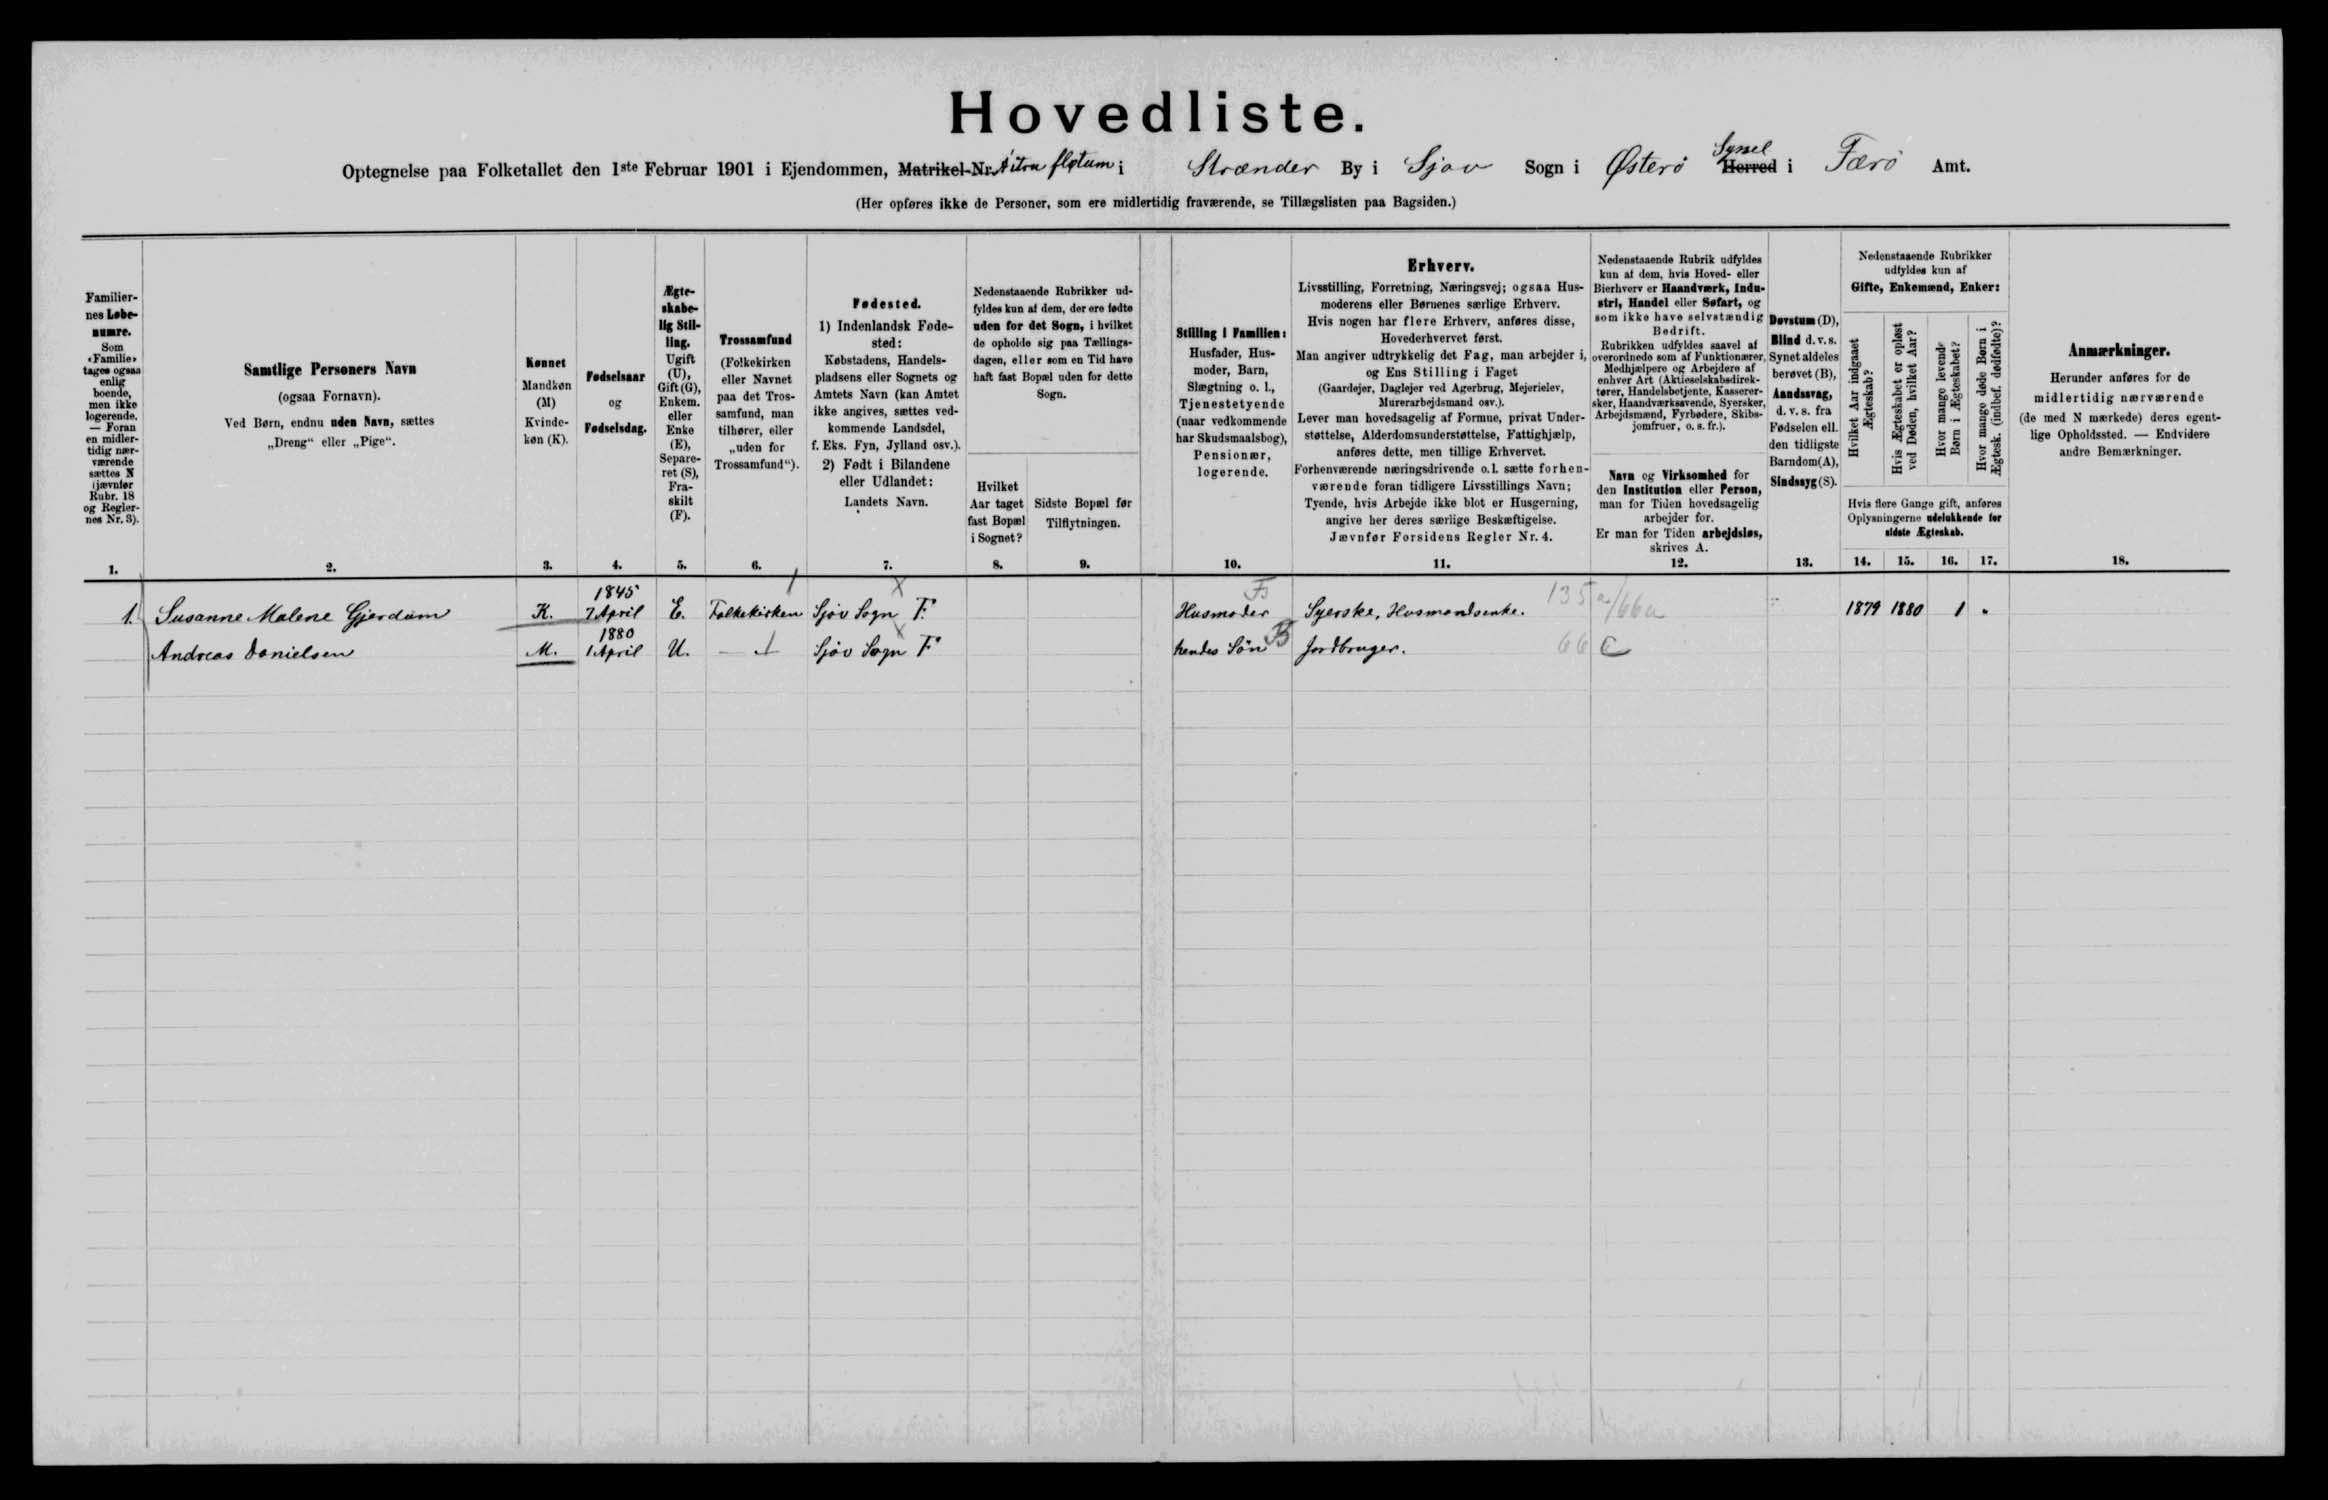 Hovedliste.
Optegnelse paa Folketallet den 1ste Februar 1901 i Ejendommen, Matrikel-Nr. flotum i Strænder By i Sjov Sogn i Østerö Syssel Herred i Færö Amt.
(Her opføres ikke de Personer, som ere midlertidig fraværende, se Tillægslisten paa Bagsiden.)
Familier-
nes Løbe-
numre.
Som
«Familie»
tages ogsaa
enlig
boende,
men ikke
logerende.
— Foran
en midler-
tidig nær-
værende
sættes N
(jævnfør
Rubr. 18
og Regler-
nes Nr. 3).
1.
Samtlige Personers Navn
(ogsaa Fornavn).
Ved Børn, endnu uden Navn, sættes
„Dreng“ eller „Pige“.
2.
Kønnet
Mandkøn
(M)
Kvinde-
køn (K).
3.
Fødselsaar
og
Fødselsdag.
4.
Ægte-
skabe-
lig Stil-
ling.
Ugift
(U),
Gift (G),
Enkem.
eller
Enke
(E),
Separe-
ret (S),
Fra-
skilt
(F).
5.
Trossamfund
(Folkekirken
eller Navnet
paa det Tros-
samfund, man
tilhører, eller
„uden for
Trossamfund“).
6.
Fødested.
1) Indenlandsk Føde-
sted:
Købstadens, Handels-
pladsens eller Sognets og
Amtets Navn (kan Amtet
ikke angives, sættes ved-
kommende Landsdel,
f. Eks. Fyn, Jylland osv.).
2) Født i Bilandene
eller Udlandet:
Landets Navn.
7.
Nedenstaaende Rubrikker ud-
fyldes kun af dem, der ere fødte
uden for det Sogn, i hvilket
de opholde sig paa Tællings-
dagen, eller som en Tid have
haft fast Bopæl uden for dette
Sogn.
Hvilket
Aar taget
fast Bopæl
i Sognet?
8.
Sidste Bopæl før
Tilflytningen.
9.
Stilling i Familien:
Husfader, Hus-
moder, Barn,
Slægtning o. l.,
Tjenestetyende
(naar vedkommende
har Skudsmaalsbog),
Pensionær,
logerende.
10.
Erhverv.
Livsstilling, Forretning, Næringsvej; ogsaa Hus-
moderens eller Børnenes særlige Erhverv.
Hvis nogen har flere Erhverv, anføres disse,
Hovederhvervet først.
Man angiver udtrykkelig det Fag, man arbejder i,
og Ens Stilling i Faget
(Gaardejer, Daglejer ved Agerbrug, Mejerielev,
Murerarbejdsmand osv.).
Lever man hovedsagelig af Formue, privat Under-
støttelse, Alderdomsunderstøttelse, Fattighjælp,
anføres dette, men tillige Erhvervet.
Forhenværende næringsdrivende o. l. sætte forhen-
værende foran tidligere Livsstillings Navn;
Tyende, hvis Arbejde ikke blot er Husgerning,
angive her deres særlige Beskæftigelse.
Jævnfør Forsidens Regler Nr. 4.
11.
Nedenstaaende Rubrik udfyldes
kun af dem, hvis Hoved- eller
Bierhverv er Haandværk, Indu-
stri, Handel eller Søfart, og
som ikke have selvstændig
Bedrift.
Rubrikken udfyldes saavel af
overordnede som af Funktionærer,
Medhjælpere og Arbejdere af
enhver Art (Aktieselskabsdirek-
tører, Handelsbetjente, Kasserer-
sker, Haandværkssvende, Syersker,
Arbejdsmænd, Fyrbødere, Skibs-
jomfruer, o. s. fr.).
Navn og Virksomhed for
den Institution eller Person,
man for Tiden hovedsagelig
arbejder for.
Er man for Tiden arbejdsløs,
skrives A.
12.
Døvstum (D),
Blind d. v. s.
Synet aldeles
berøvet (B),
Aandssvag,
d. v. s. fra
Fødselen ell.
den tidligste
Barndom (A),
Sindssyg (S).
13.
Nedenstaaende Rubrikker
udfyldes kun af
Gifte, Enkemænd, Enker:
Hvilket Aar indgaaet
Ægteskab?
Hvis Ægteskabet er opløst
ved Døden, hvilket Aar?
Hvor mange levende
Børn i Ægteskabet?
Hvor mange døde Børn i
Ægtesk. (indbef. dødfødte)?
Hvis flere Gange gift, anføres
Oplysningerne udelukkende for
sidste Ægteskab.
14. 15. 16. 17.
Anmærkninger.
Herunder anføres for de
midlertidig nærværende
(de med N mærkede) deres egent-
lige Opholdssted. — Endvidere
andre Bemærkninger.
18.
1. Susanne Malene Gjerdum K. 1845 7 April E. Folkekirken Sjov Sogn F. Husmoder Syerske, Husmandsenke. 135a/66a 1879 1880 1 "
Andreas Danielsen M. 1880 1 April U. — Sjov Sogn F. hendes Sön B Jordbruger. 66 C